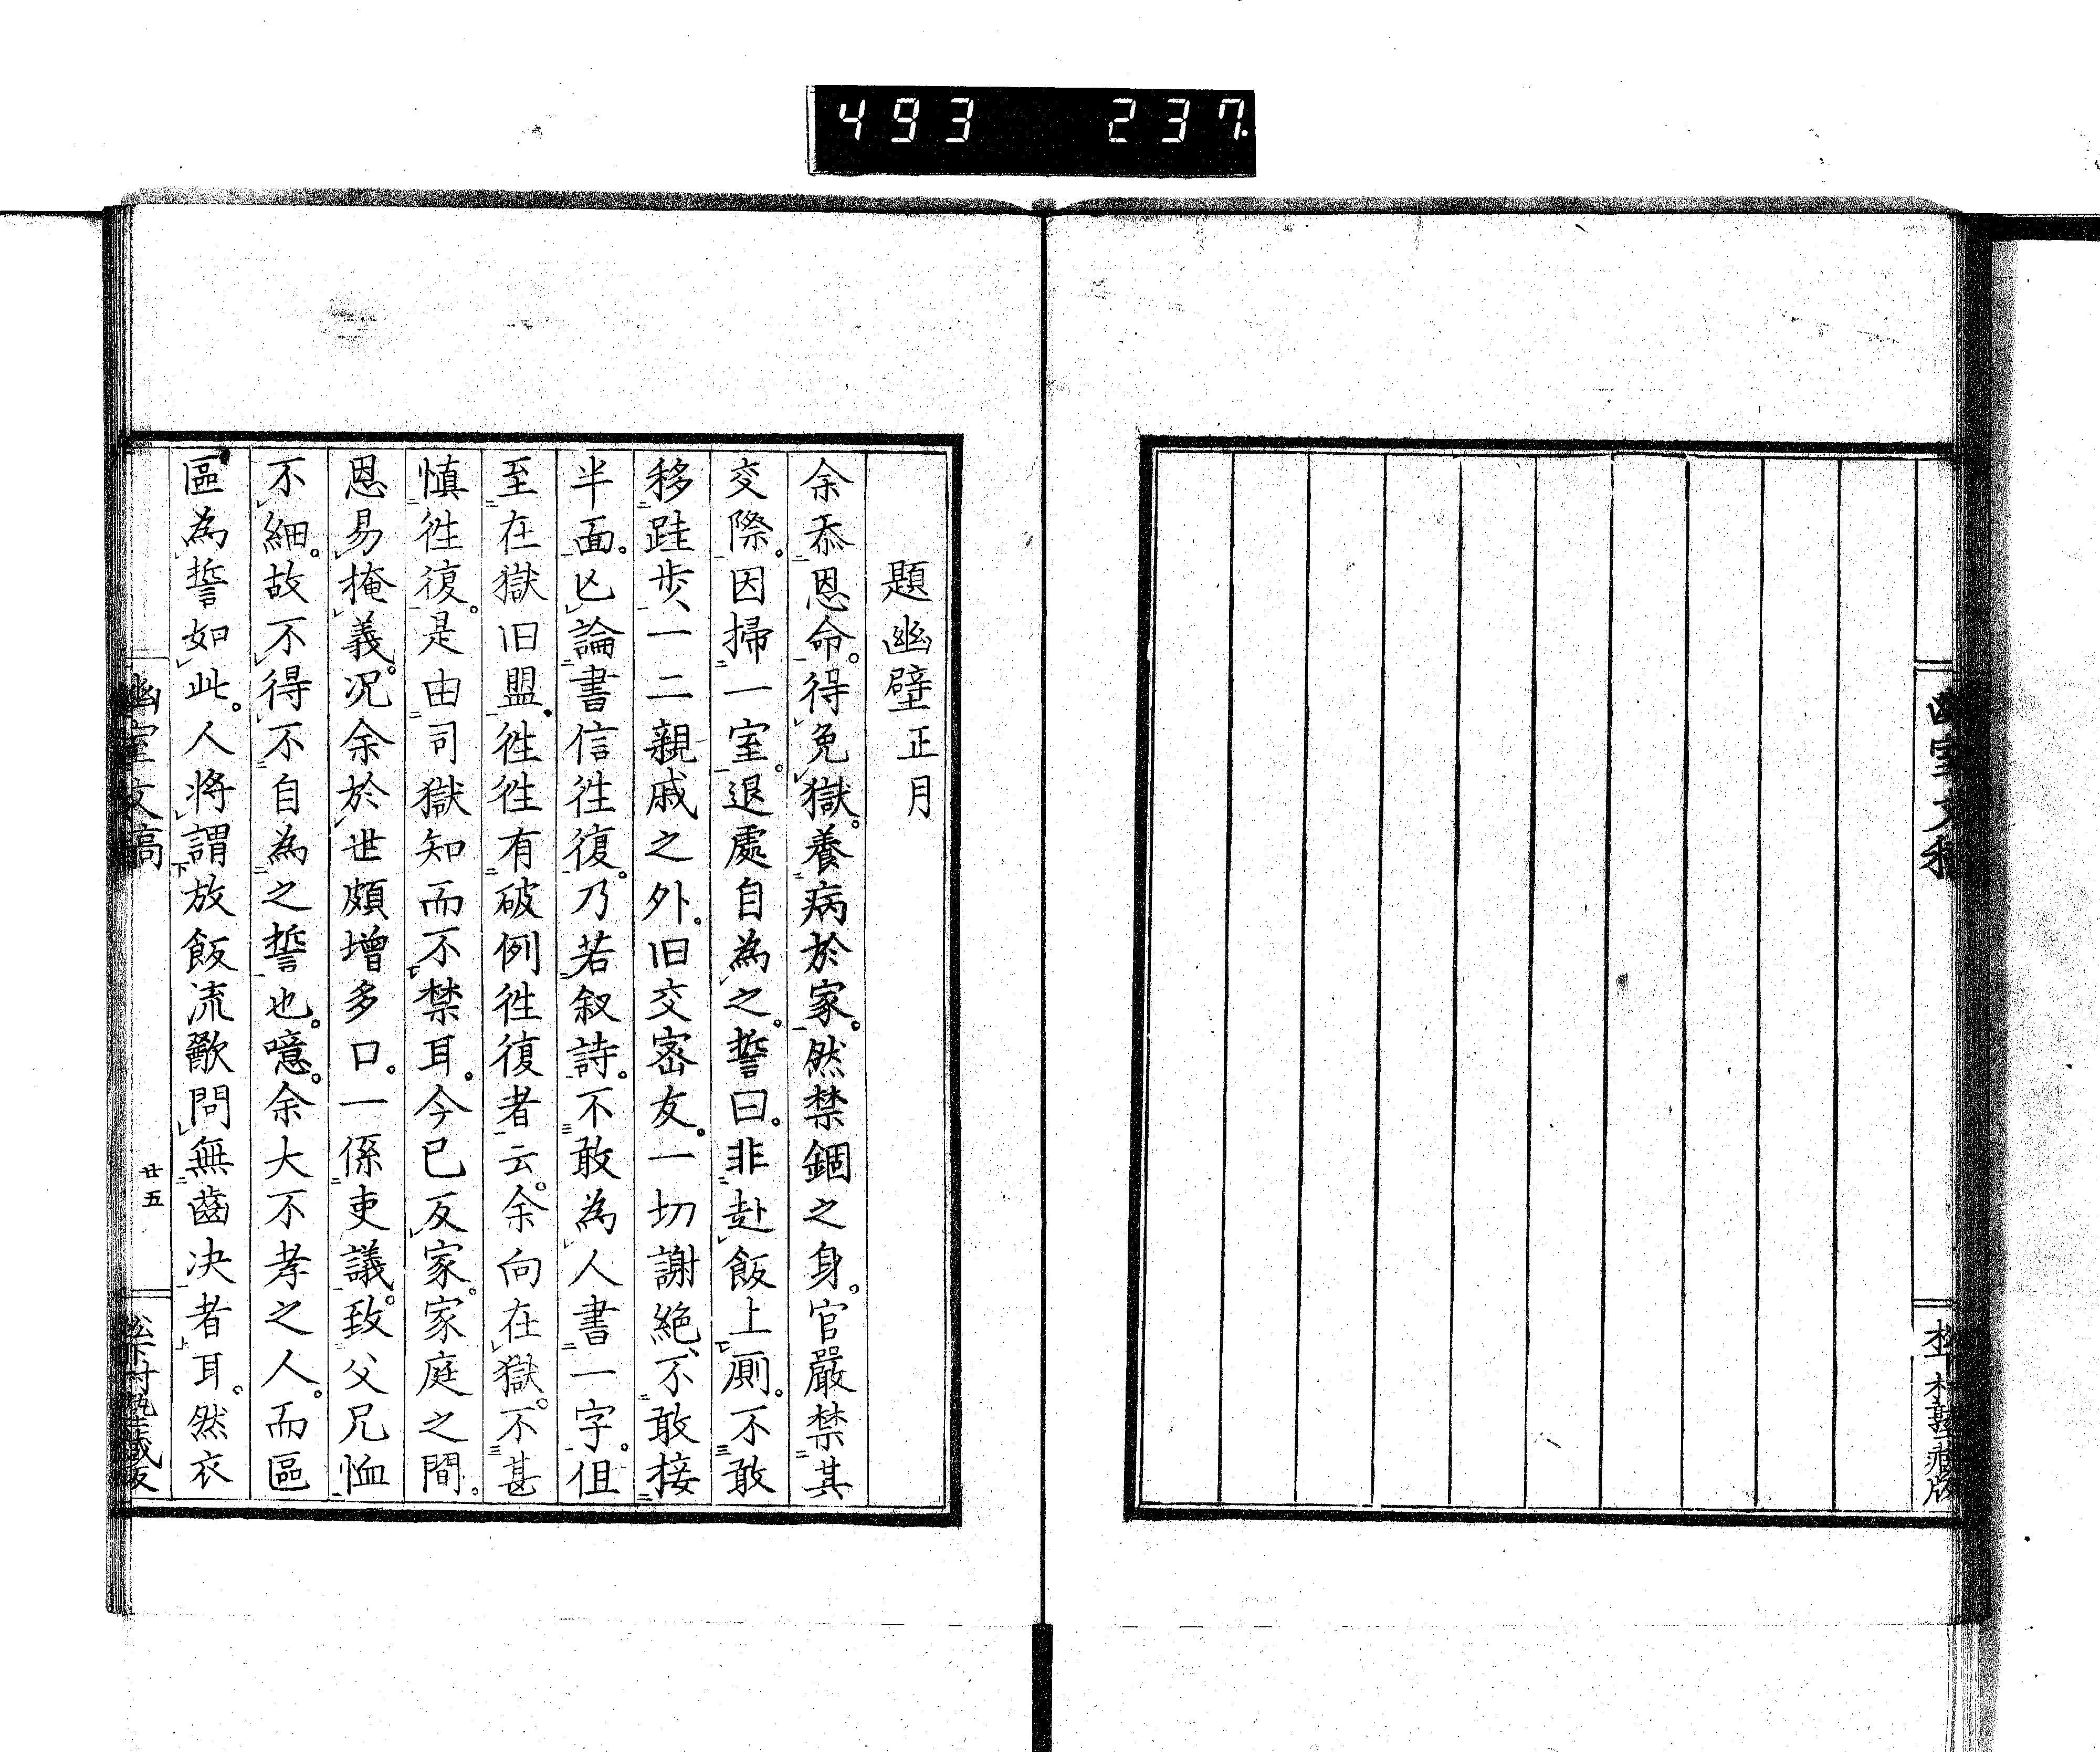 493 237
幽室文稿
松下村塾藏版
題幽壁正月
余忝恩命。得免獄。養病於家。然禁錮之身。官嚴禁其
交際。因掃一室。退處自為之。誓曰。非赴飯上厠。不敢
移跬步、一二親戚之外。旧交密友。一切謝絶、不敢接
半面。亡論書信徃復。乃若叙詩。不敢為人書一字。但
至在獄旧盟。徃徃有破例徃復者云。余向在獄。不甚
慎徃復。是由司獄知而不禁耳。今已反家。家庭之間。
恩易掩義。况余於世頗增多口。一係吏議。致父兄恤
不細。故不得不自為之誓也。噫。余大不孝之人。而區
區為誓如此。人將謂放飯流歠問無齒决者耳。然衣
幽室文稿
廿五
松下村塾藏版